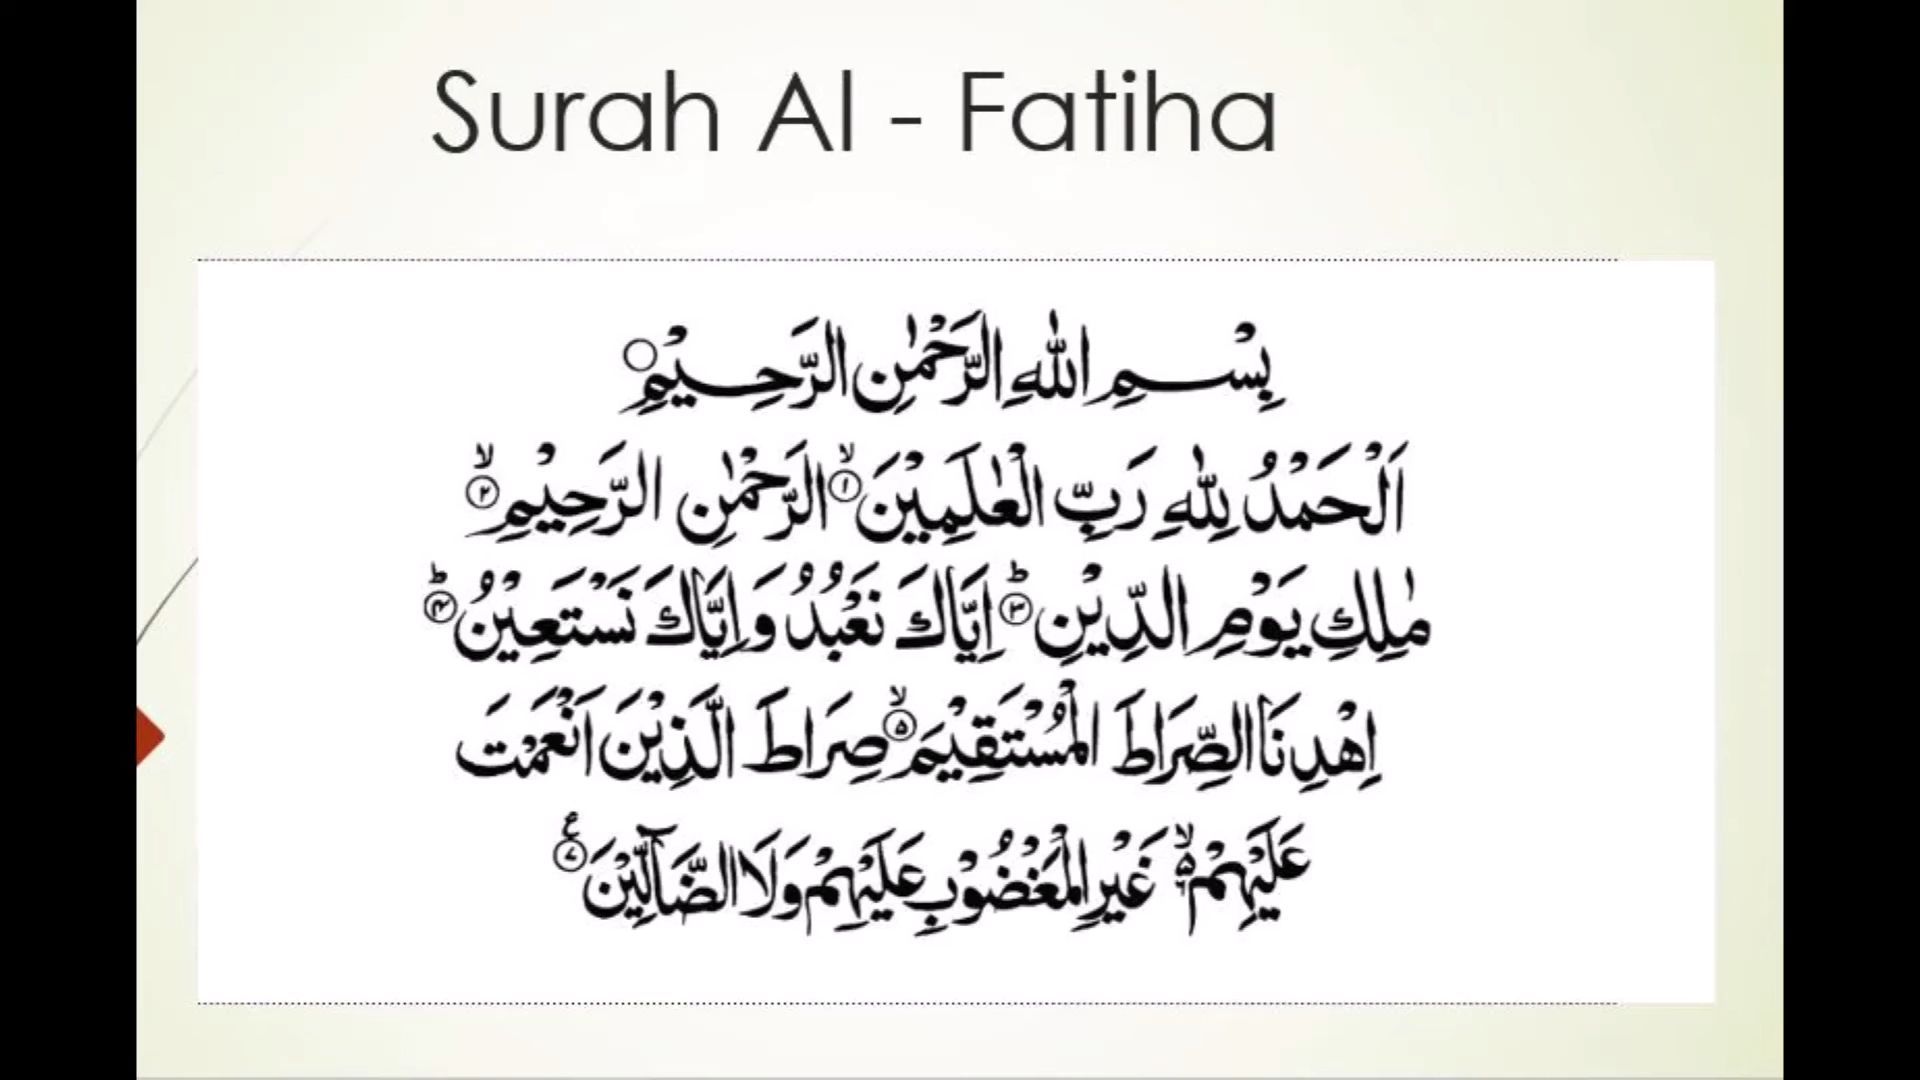 Surah Al - Fatiha
بِسْمِ اللهِ الرَّحْمٰنِ الرَّحِيْمِ۝
اَلْحَمْدُ لِلّٰهِ رَبِّ الْعٰلَمِيْنَ ۙ۝۱ الرَّحْمٰنِ الرَّحِيْمِ ۙ۝۲
مٰلِكِ يَوْمِ الدِّيْنِ ؕ۝۳ اِيَّاكَ نَعْبُدُ وَاِيَّاكَ نَسْتَعِيْنُ ؕ۝۴
اِهْدِنَا الصِّرَاطَ الْمُسْتَقِيْمَ ۙ۝۵ صِرَاطَ الَّذِيْنَ اَنْعَمْتَ
عَلَيْهِمْ ۙ۝۶ غَيْرِ الْمَغْضُوْبِ عَلَيْهِمْ وَلَا الضَّآلِّيْنَ ۝۷ ع